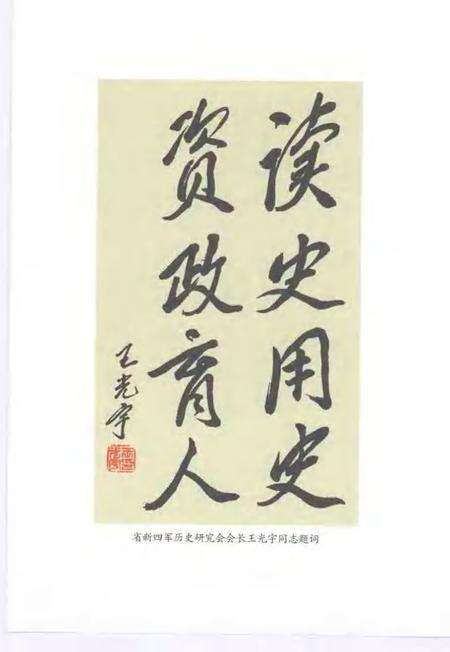 读史用史
资政育人
王光宇
省新四军历史研究会会长王光宇同志题词